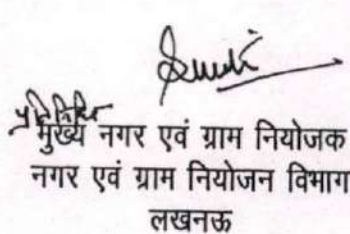 मुख्य नगर एवं ग्राम नियोजक
नगर एवं ग्राम नियोजन विभाग
लखनऊ